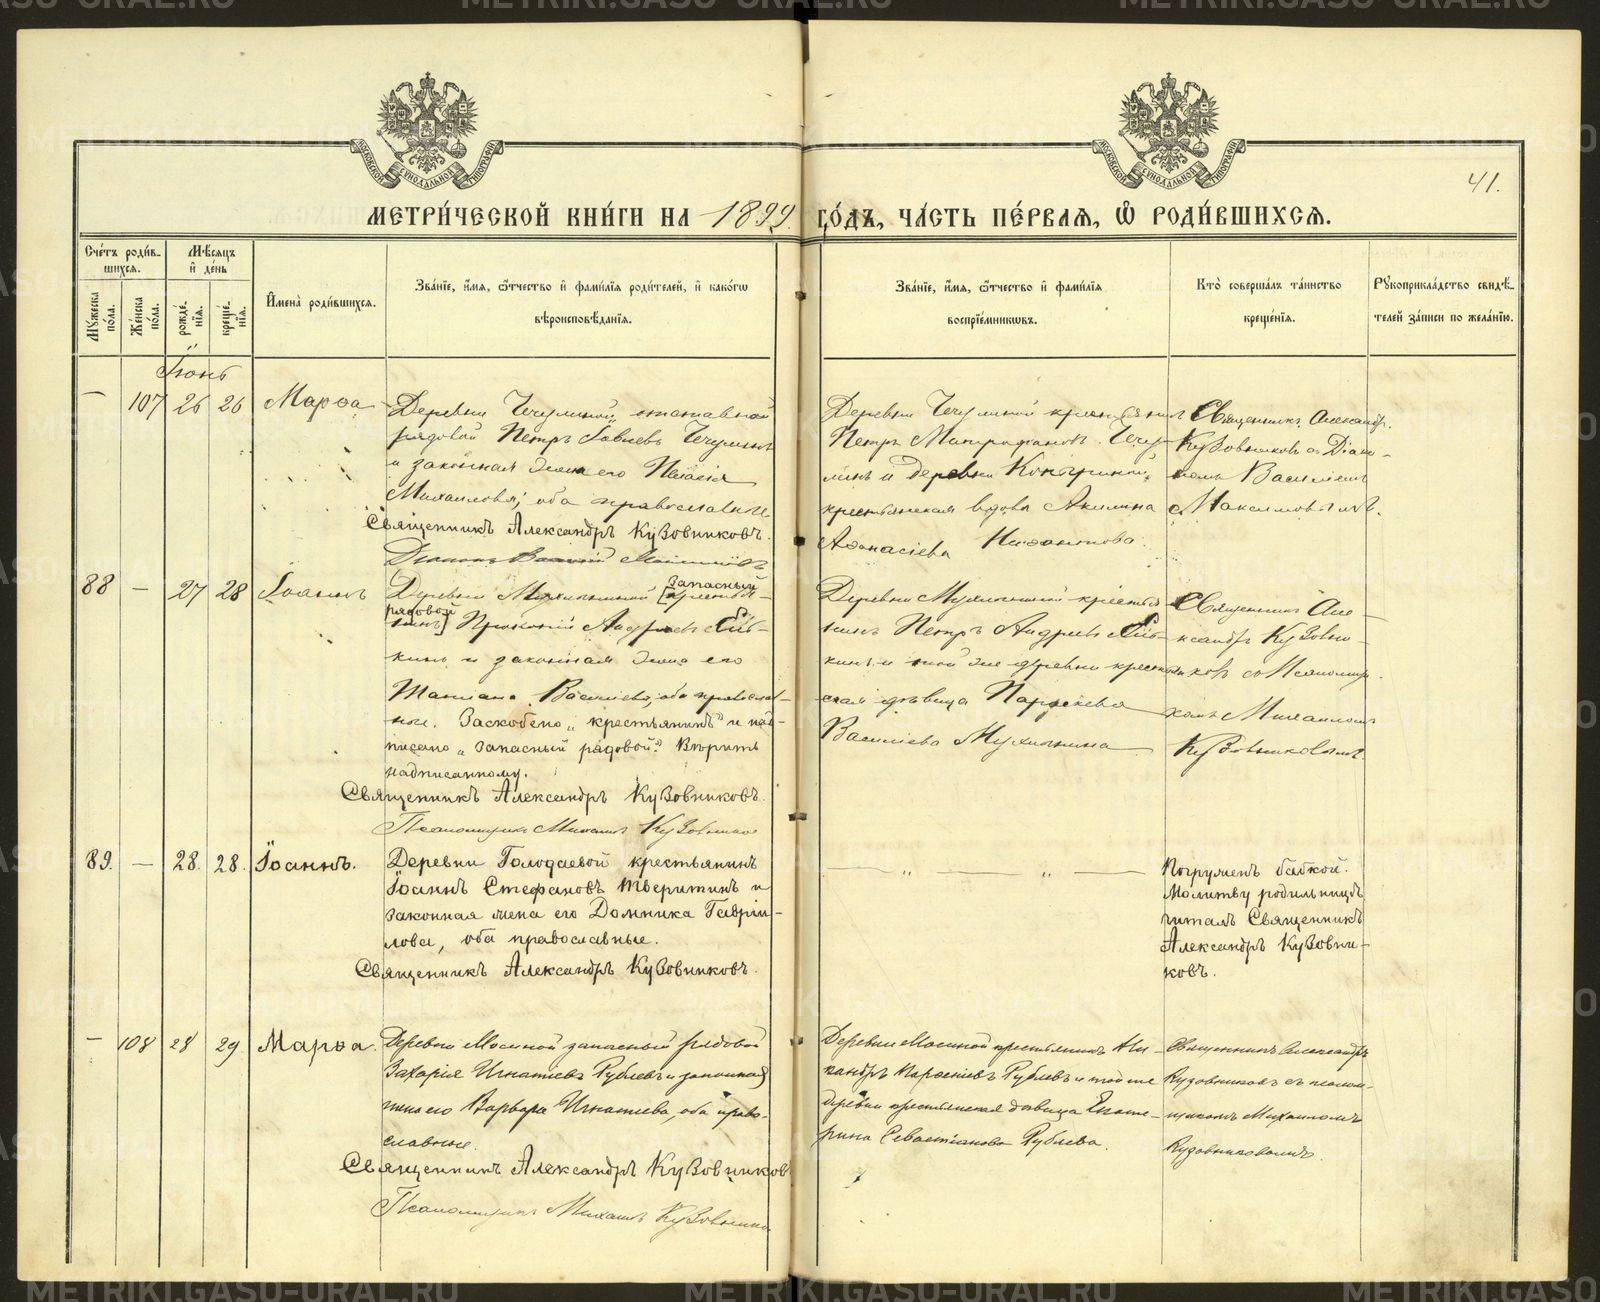 МЕТРИ́ЧЕСКОЙ КНИ́ГИ НА 1899 ГО́ДЪ, ЧА́СТЬ ПЕ́РВАЯ, Ѡ РОДИ́ВШИХСЯ.
41.
Сче́тъ роди́в-
шихся.
Мѣсяцъ
и де́нь
Мꙋжеска по́ла.
Же́нска по́ла.
рожде́-
нія.
креще́-
нія.
Имена̀ роди́вшихся.
Зва́ніе, и́мя, ѻ́тчество и фами́лія роди́телей, и како́гѡ
вѣроисповѣ́данія.
Зва́ніе, и́мя, ѻ́тчество и фами́лія
воспріе́мникѡвъ.
Кто̀ соверша́лъ та́инство
креще́нія.
Рꙋкоприкла́дство свидѣ́-
телей за́писи по жела́нію.
Іюнь
— 107 26 26 Марѳа
Деревни Чечулиной, отставной
рядовой Петръ Іовлевъ Чечулинъ
и законная жена его Пелагія
Михаилова; оба православные
Священникъ Александръ Кузовниковъ.
Діаконъ Василій Максимовъ
Деревни Чечулиной крестьянинъ
Петръ Митрофановъ Чечу-
линъ и деревни
крестьянская вдова Акилина
Аѳанасіева
Священникъ Александръ
Кузовниковъ съ Діако-
номъ Василіемъ
Максимовымъ.
88 — 27 28 Іоаннъ
Деревни Мухлыниной [крестья- запасный
нинъ] рядовой Прокопій Андреевъ
кинъ и законная жена его
Татіана Васильева, оба православ-
ные. Заскоблено „крестьянинъ" и над-
писано „запасный рядовой". Вѣрить
надписанному.
Священникъ Александръ Кузовниковъ.
Псаломщикъ Михаилъ Кузовниковъ
Деревни Мухлыниной крестья-
нинъ Петръ Андреевъ
кинъ и той же деревни крестьян-
ская дѣвица Параскева
Василіева Мухлынина
Священникъ Але-
ксандръ Кузовни-
ковъ съ Псаломщи-
комъ Михаиломъ
Кузовниковымъ.
89. — 28. 28. Іоаннъ.
Деревни Голодаевой крестьянинъ
Іоаннъ Стефановъ Тверитинъ и
законная жена его Домника Гаврі-
лова, оба православные.
Священникъ Александръ Кузовниковъ.
— „ — „ —
Погруженъ бабкой.
Молитву родильницѣ
читалъ Священникъ
Александръ Кузовни-
ковъ.
— 108 28 29 Марѳа.
Деревни Мосиной запасный рядовой
Захарія Игнатіевъ Рублевъ и законная
жена его Варвара Игнатіева, оба право-
славные.
Священникъ Александръ Кузовниковъ
Псаломщикъ Михаилъ Кузовниковъ
Деревни Мосиной крестьянинъ Ни-
кандръ Парѳеніевъ Рублевъ и той же
деревни крестьянская дѣвица Екате-
рина Севастіанова Рублева.
Священникъ Александръ
Кузовниковъ съ псалом-
щикомъ Михаиломъ
Кузовниковымъ.
METRIKI.GASO-URAL.RU